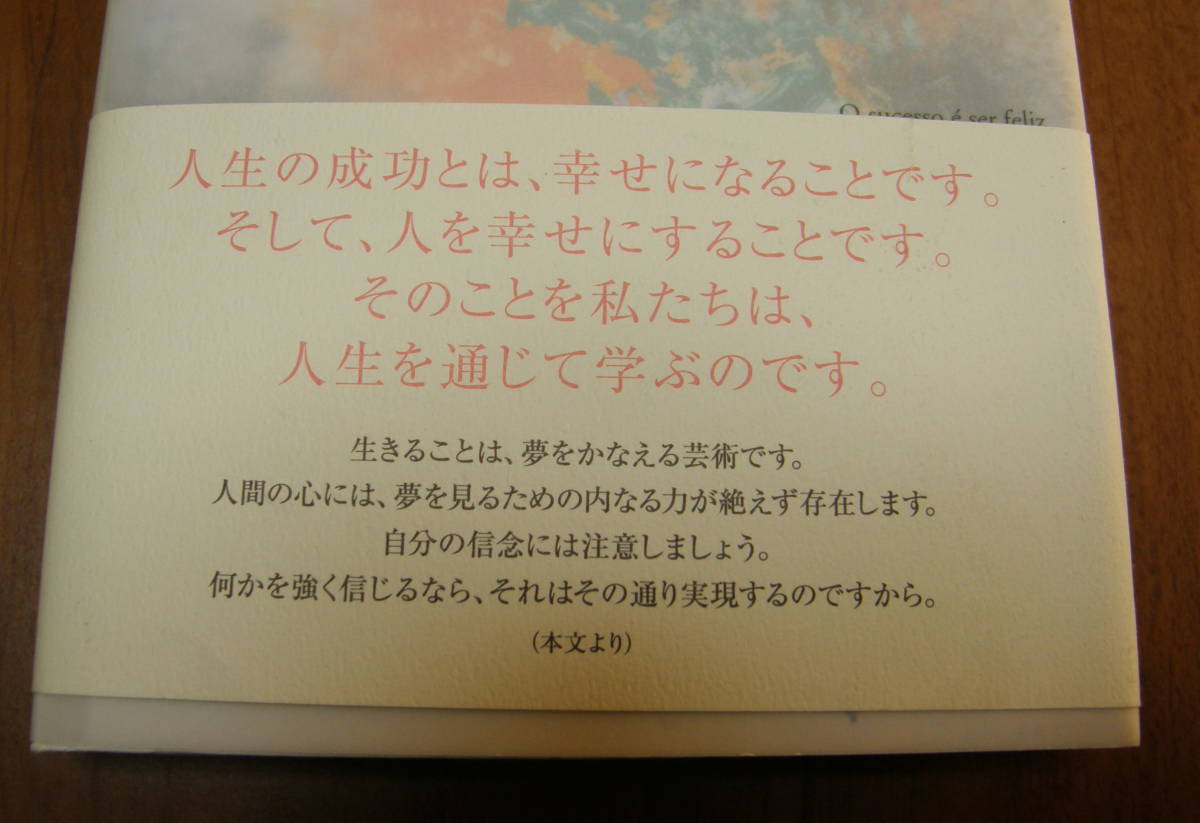 O sucesso é ser feliz
人生の成功とは、幸せになることです。
そして、人を幸せにすることです。
そのことを私たちは、
人生を通じて学ぶのです。
生きることは、夢をかなえる芸術です。
人間の心には、夢を見るための内なる力が絶えず存在します。
自分の信念には注意しましょう。
何かを強く信じるなら、それはその通り実現するのですから。
(本文より)